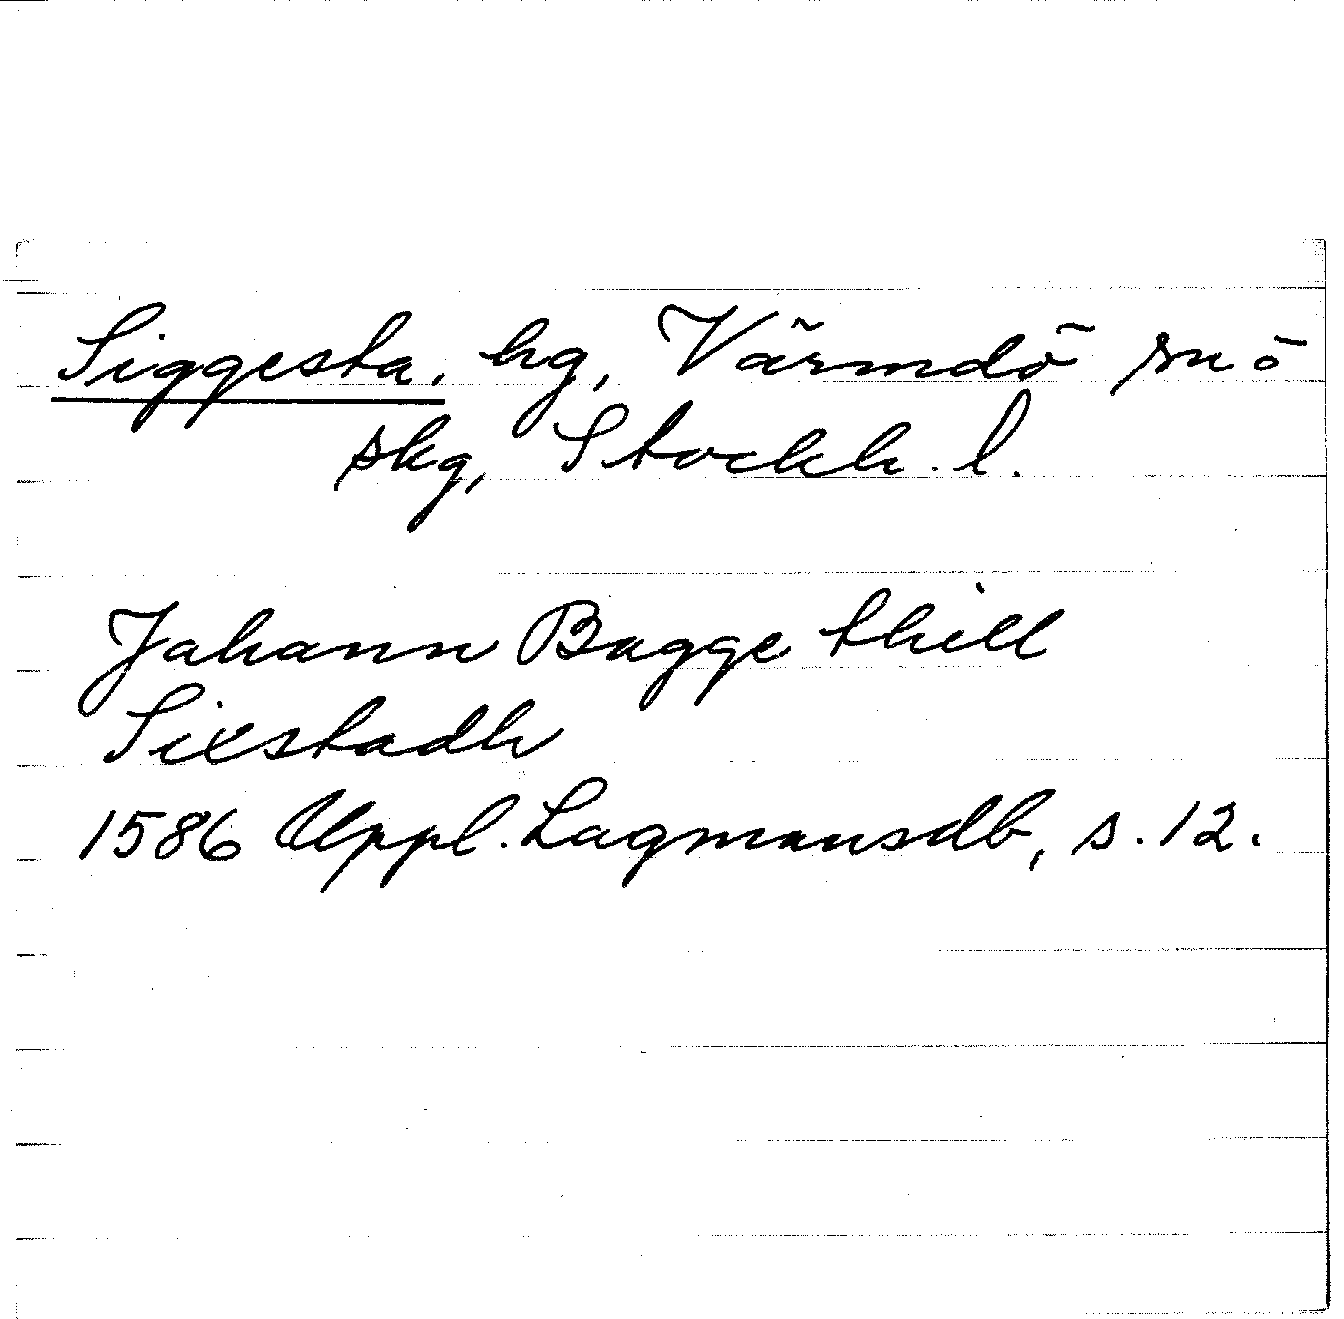 Siggesta, hg, Värmdö sn ö
skg, Stockh. l.
Jahann Bagge thill
Sixstadh
1586 Uppl. Lagmansdb, s. 12.